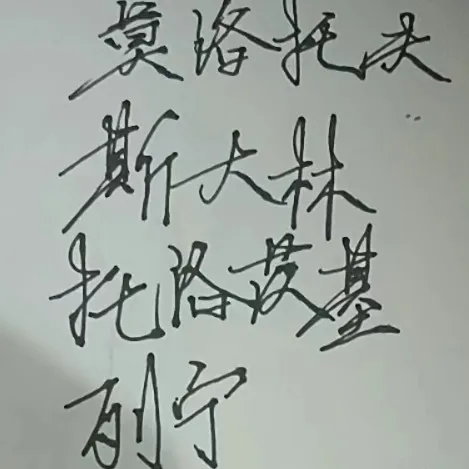 莫洛托夫
斯大林
托洛茨基
列宁